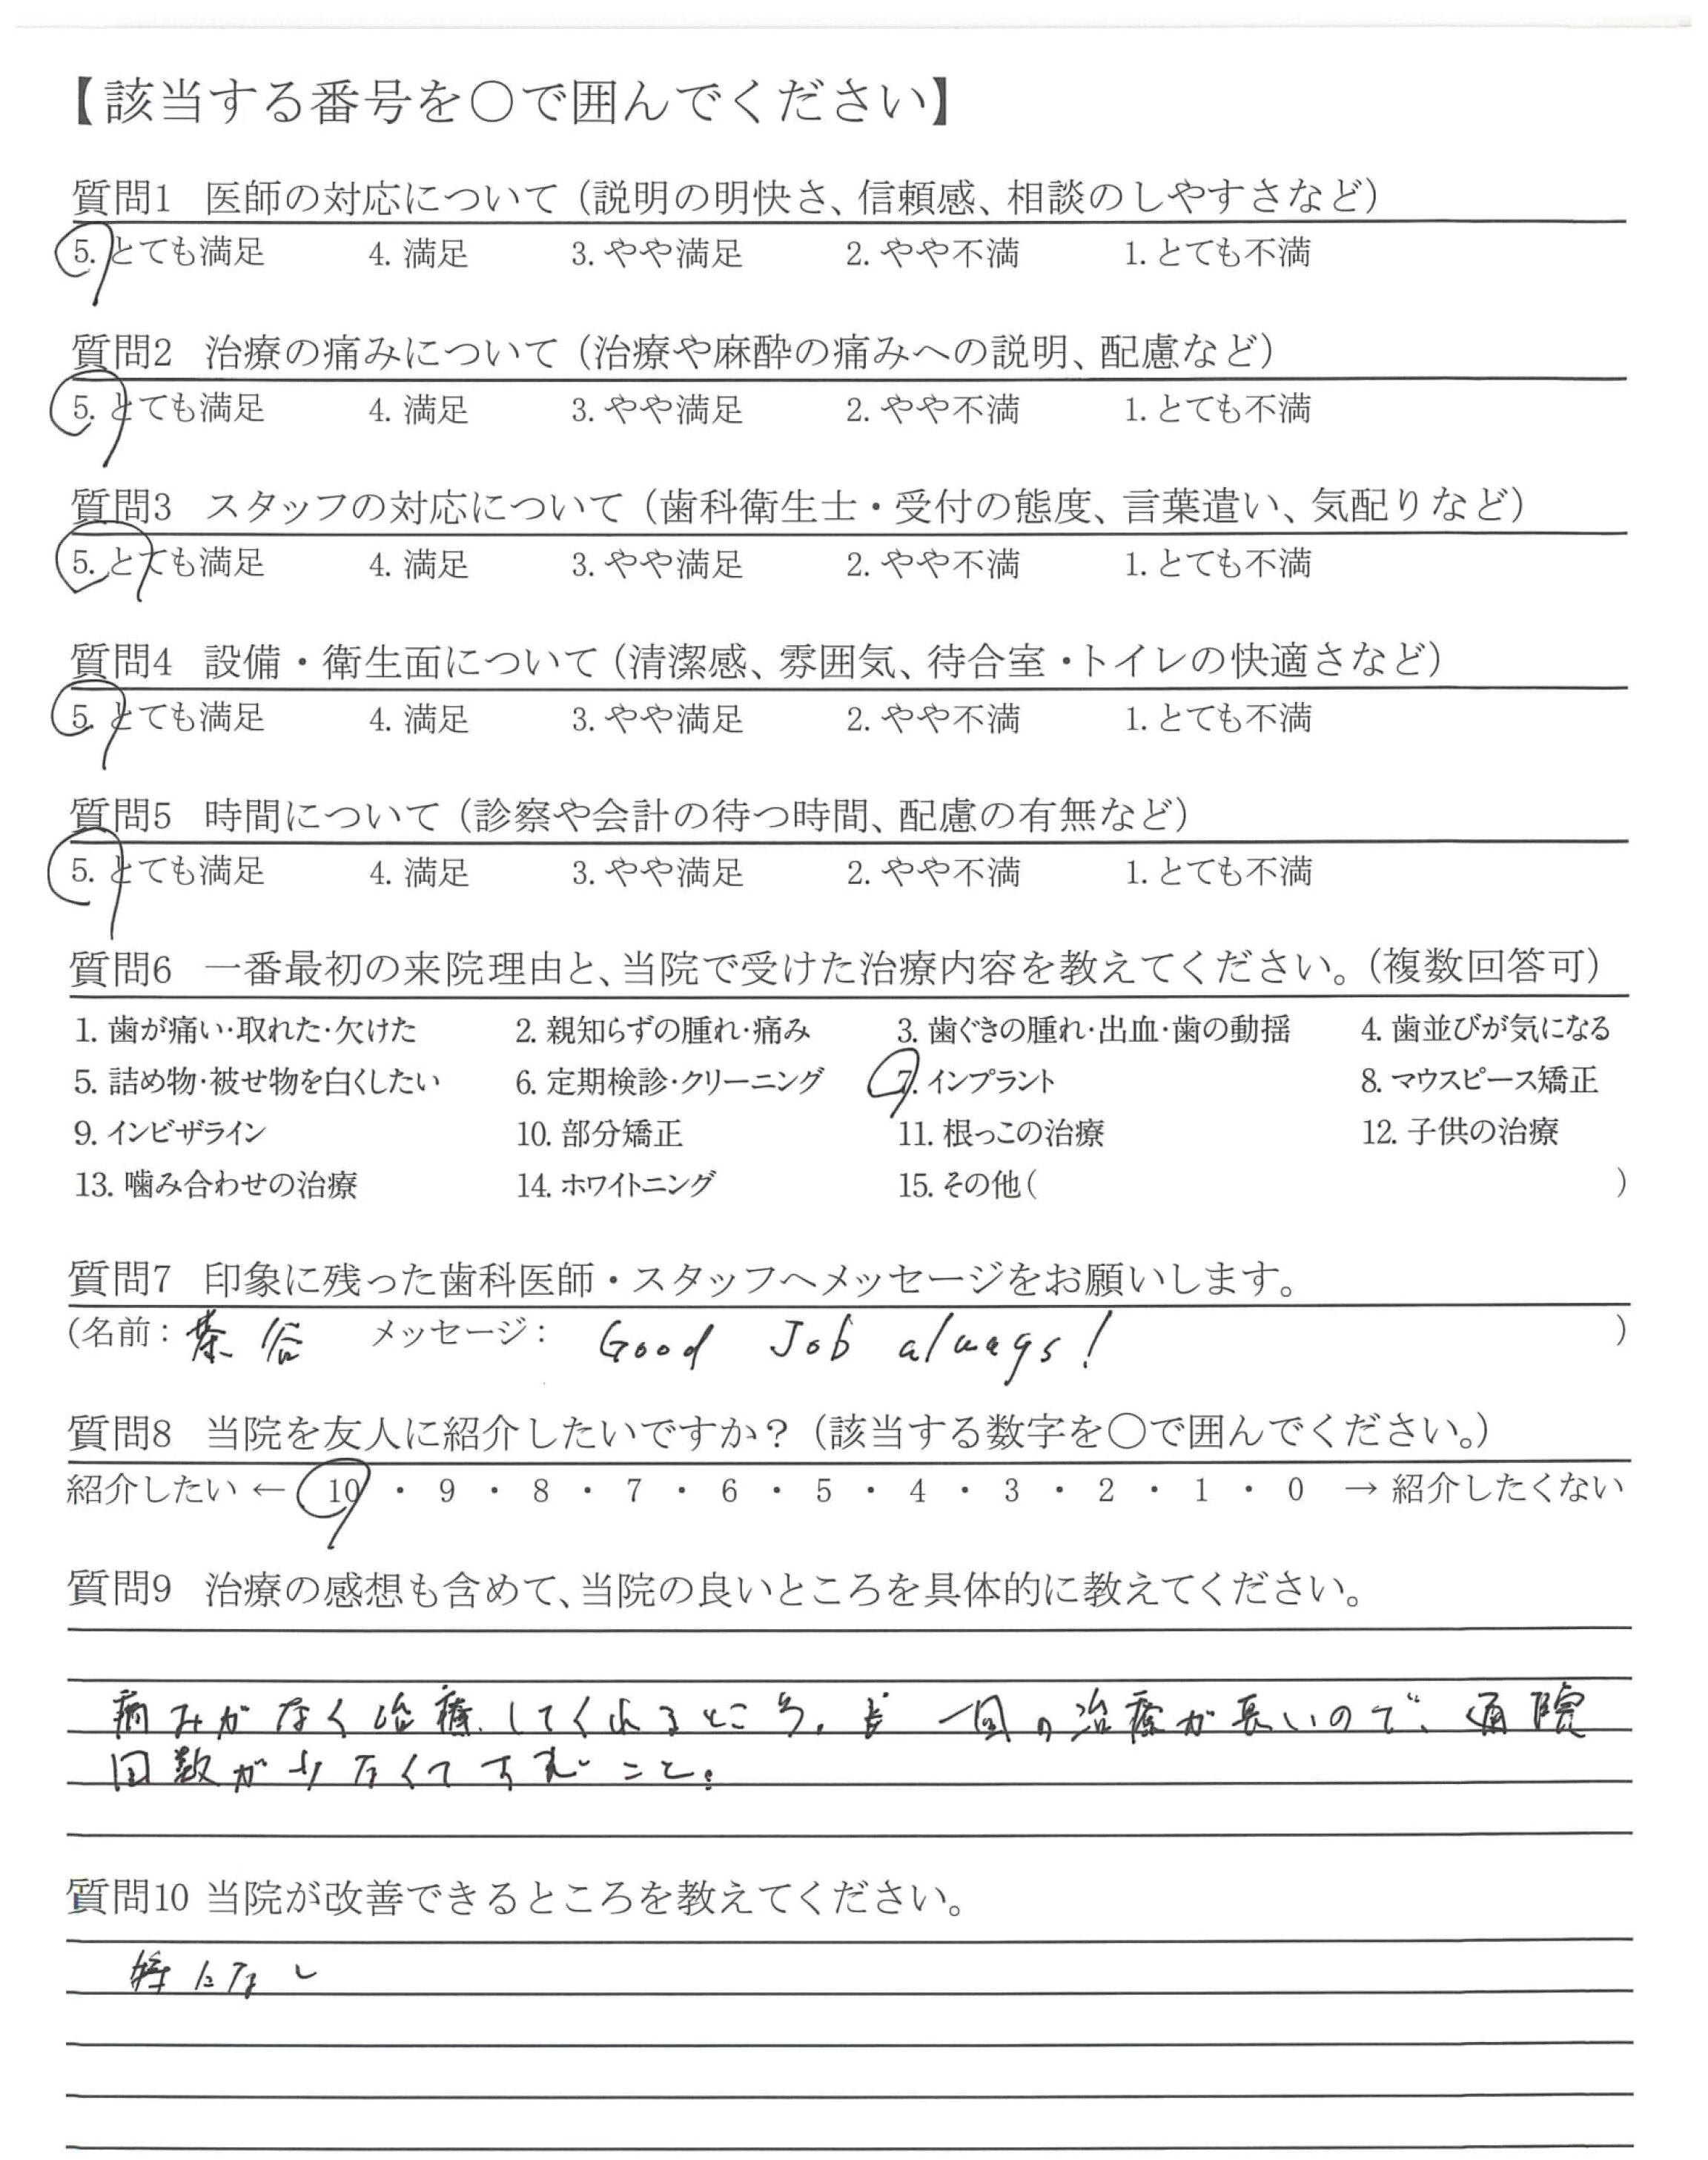 【該当する番号を○で囲んでください】
質問1 医師の対応について（説明の明快さ、信頼感、相談のしやすさなど）
5. とても満足 4. 満足 3. やや満足 2. やや不満 1. とても不満
質問2 治療の痛みについて（治療や麻酔の痛みへの説明、配慮など）
5. とても満足 4. 満足 3. やや満足 2. やや不満 1. とても不満
質問3 スタッフの対応について（歯科衛生士・受付の態度、言葉遣い、気配りなど）
5. とても満足 4. 満足 3. やや満足 2. やや不満 1. とても不満
質問4 設備・衛生面について（清潔感、雰囲気、待合室・トイレの快適さなど）
5. とても満足 4. 満足 3. やや満足 2. やや不満 1. とても不満
質問5 時間について（診察や会計の待つ時間、配慮の有無など）
5. とても満足 4. 満足 3. やや満足 2. やや不満 1. とても不満
質問6 一番最初の来院理由と、当院で受けた治療内容を教えてください。（複数回答可）
1. 歯が痛い・取れた・欠けた 2. 親知らずの腫れ・痛み 3. 歯ぐきの腫れ・出血・歯の動揺 4. 歯並びが気になる
5. 詰め物・被せ物を白くしたい 6. 定期検診・クリーニング 7. インプラント 8. マウスピース矯正
9. インビザライン 10. 部分矯正 11. 根っこの治療 12. 子供の治療
13. 噛み合わせの治療 14. ホワイトニング 15. その他（ ）
質問7 印象に残った歯科医師・スタッフへメッセージをお願いします。
（名前： メッセージ： Good Job always! ）
質問8 当院を友人に紹介したいですか？（該当する数字を○で囲んでください。）
紹介したい ← 10 ・ 9 ・ 8 ・ 7 ・ 6 ・ 5 ・ 4 ・ 3 ・ 2 ・ 1 ・ 0 → 紹介したくない
質問9 治療の感想も含めて、当院の良いところを具体的に教えてください。
痛みがなく治療してくれるところ。 一回の治療が長いので、通院
回数が少なくてすむこと。
質問10 当院が改善できるところを教えてください。
特になし